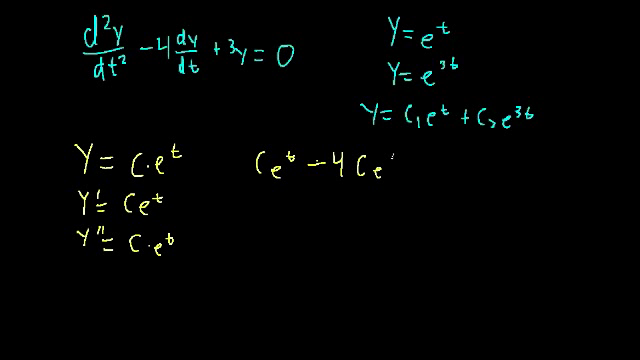 d²y/dt² - 4 dy/dt + 3y = 0
y = e^t
y = e^{3t}
y = c₁e^t + c₂e^{3t}
y = c·e^t
y' = ce^t
y'' = c·e^t
ce^t - 4ce